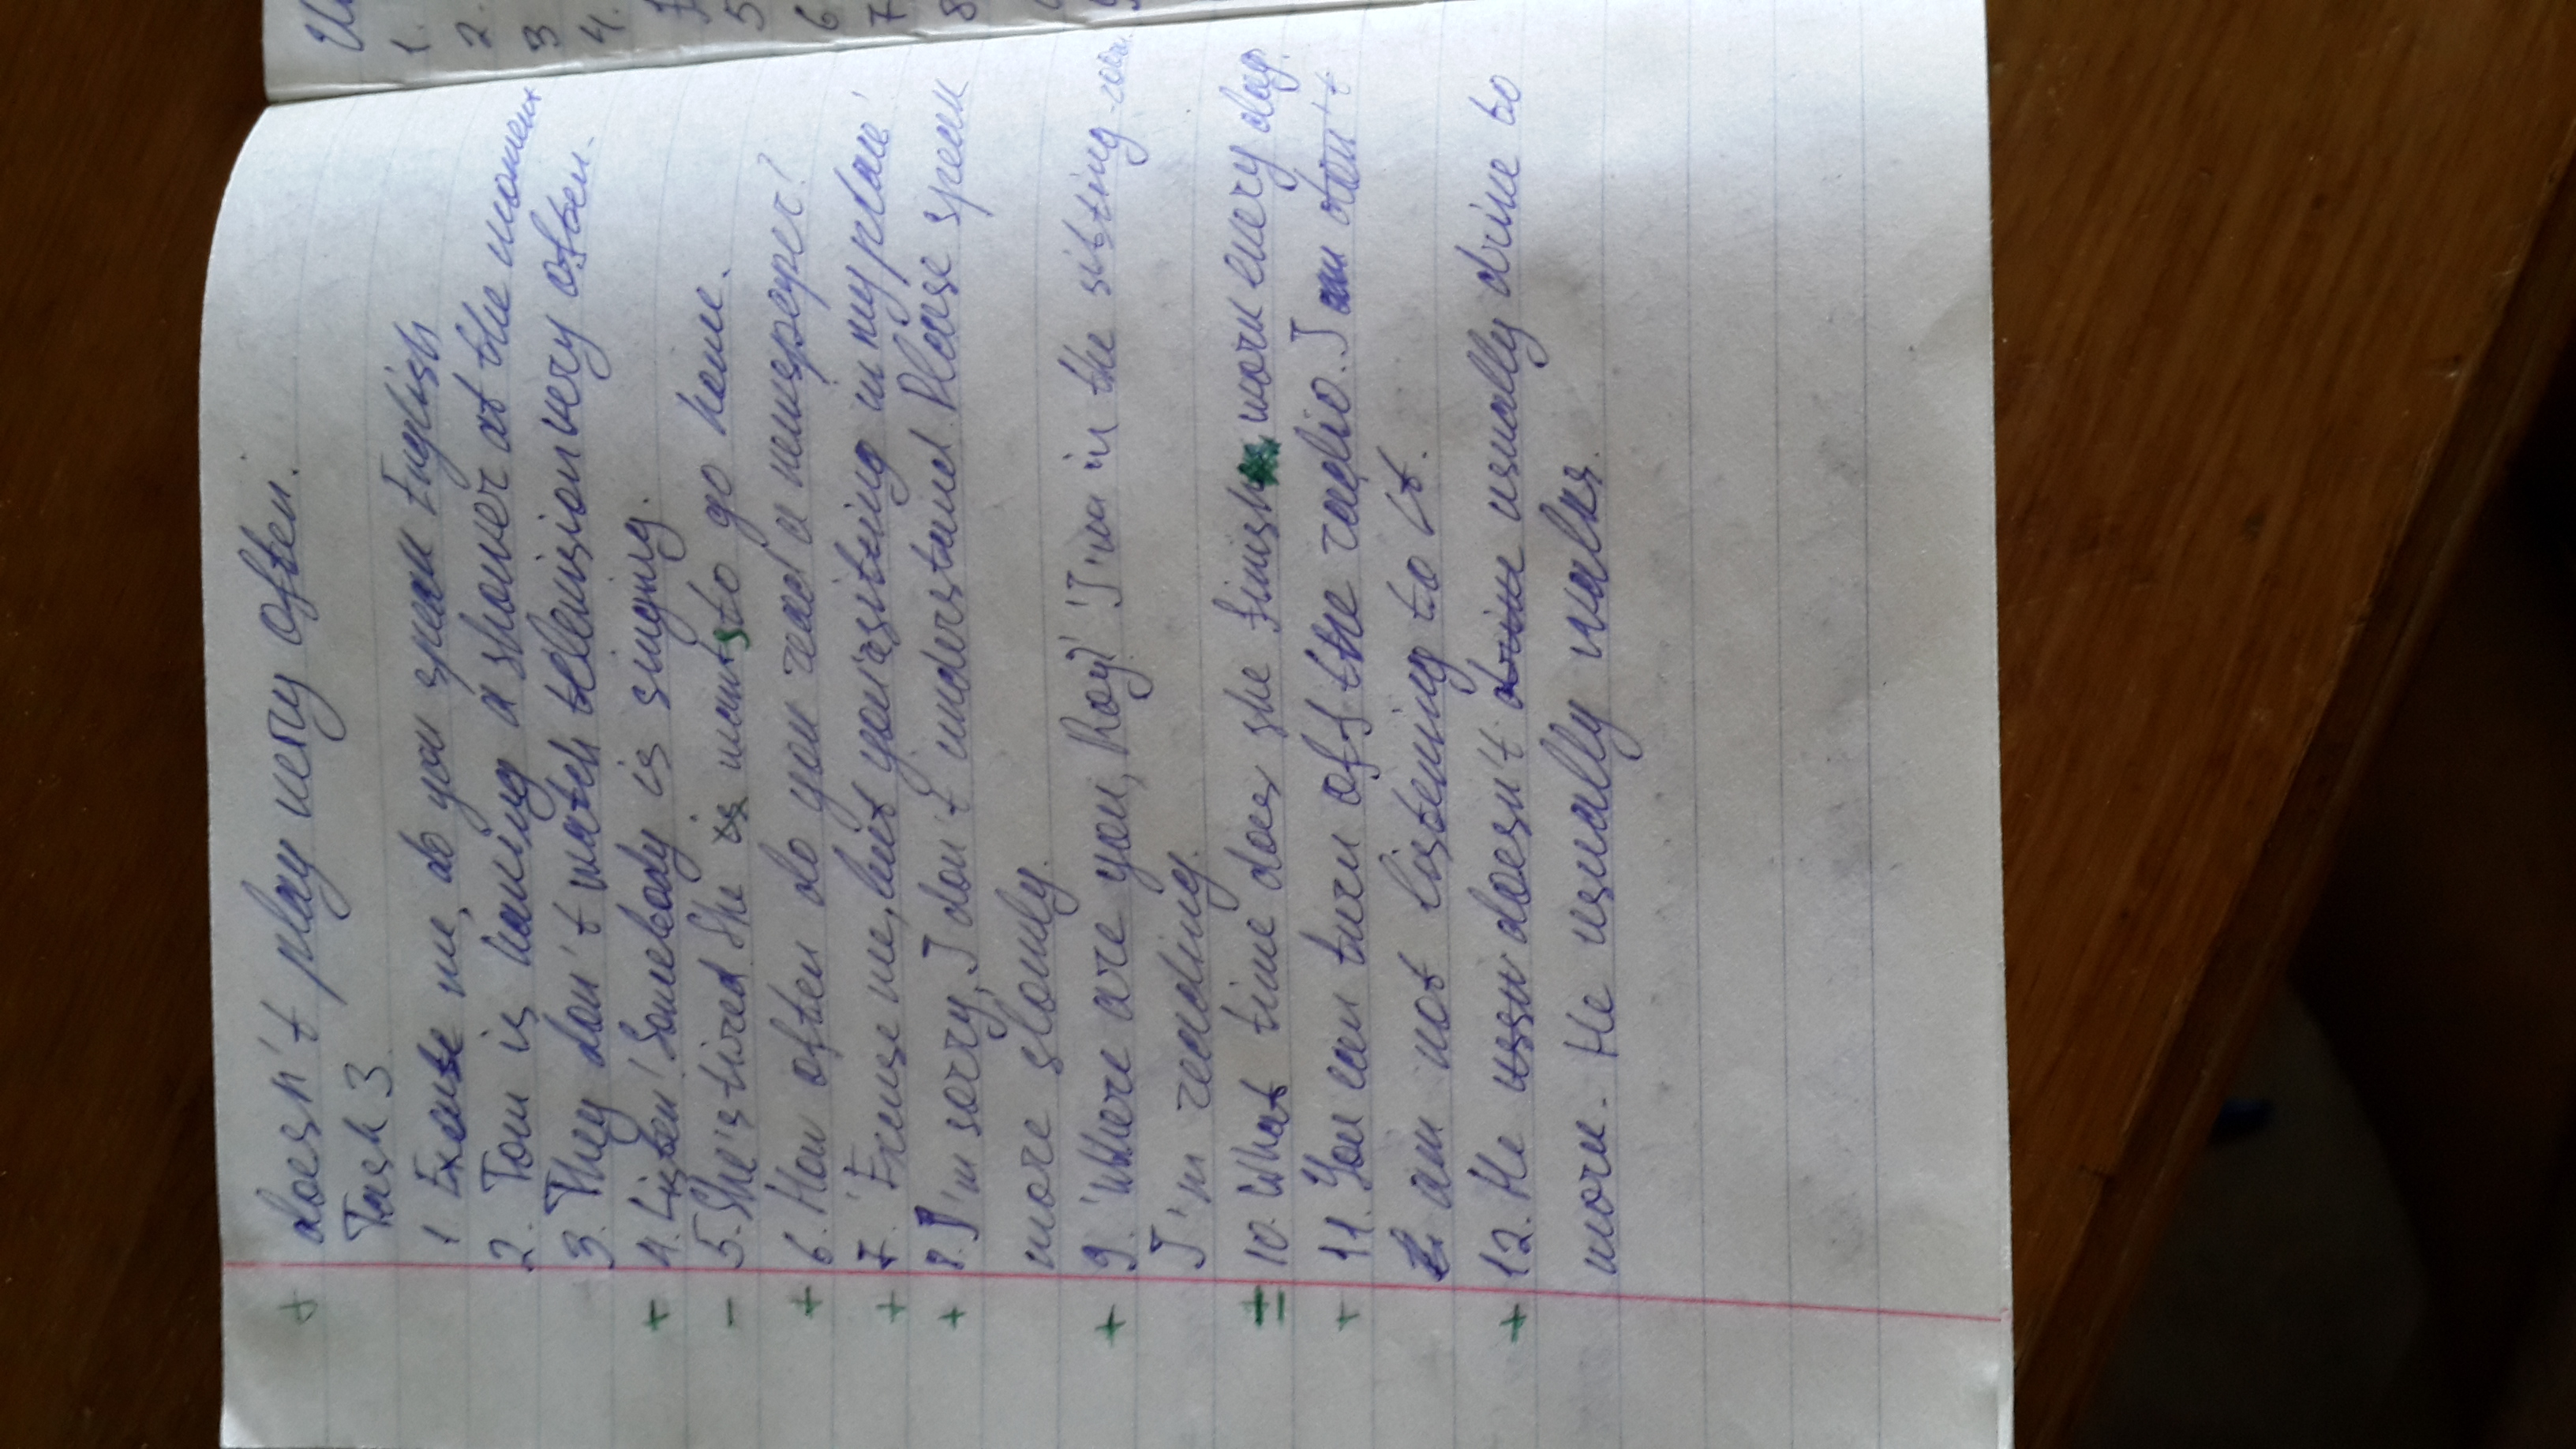 + doesn't play very often.
Task 3.
1. Excuse me, do you speak English
2. Tom is having a shower at the moment
3. They don't watch television very often.
+ 4. Listen! Somebody is singing.
- 5. She's tired. She is wants to go home.
+ 6. How often do you read a newspaper?
+ 7. 'Excuse me, but you're sitting in my place'
+ 8. I'm sorry, I don't understand. Please speak
more slowly.
+ 9. 'Where are you, Roy?' 'I'm in the sitting-room.
I'm reading.
10. What time does she finish work every day?
+ 11. You can turn off the radio. I am don't
am not listening to it.
+ 12. He doesn't drive usually drive to
work. He usually walks.
1.
2.
3
4.
5
6
7
8